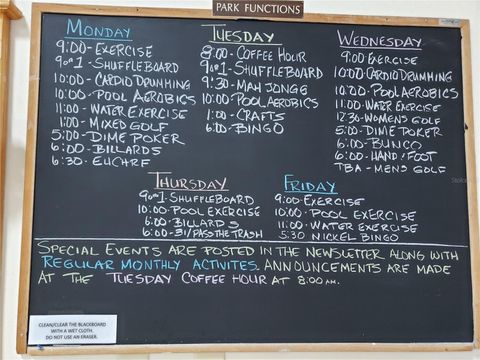 PARK FUNCTIONS
MONDAY
9:00 - EXERCISE
9 OR 1 - SHUFFLEBOARD
10:00 - CARDIO DRUMMING
10:00 - POOL AEROBICS
11:00 - WATER EXERCISE
1:00 - MIXED GOLF
5:00 - DIME POKER
6:00 - BILLARDS
6:30 - EUCHRE
TUESDAY
8:00 - COFFEE HOUR
9 OR 1 - SHUFFLEBOARD
9:30 - MAH JONGG
10:00 - POOL AEROBICS
1:00 - CRAFTS
6:00 - BINGO
WEDNESDAY
9:00 EXERCISE
10:00 CARDIO DRUMMING
10:00 POOL AEROBICS
11:00 - WATER EXERCISE
12:30 - WOMENS GOLF
5:00 - DIME POKER
6:00 - BUNCO
6:00 - HAND/FOOT
TBA - MENS GOLF
THURSDAY
9 OR 1 - SHUFFLEBOARD
10:00 - POOL EXERCISE
6:00 - BILLARDS
6:00 - 31/PASS THE TRASH
FRIDAY
9:00 - EXERCISE
10:00 - POOL EXERCISE
11:00 - WATER EXERCISE
5:30 NICKEL BINGO
SPECIAL EVENTS ARE POSTED IN THE NEWSLETTER ALONG WITH
REGULAR MONTHLY ACTIVITES. ANNOUNCEMENTS ARE MADE
AT THE TUESDAY COFFEE HOUR AT 8:00 AM.
CLEAN/CLEAR THE BLACKBOARD
WITH A WET CLOTH.
DO NOT USE AN ERASER.